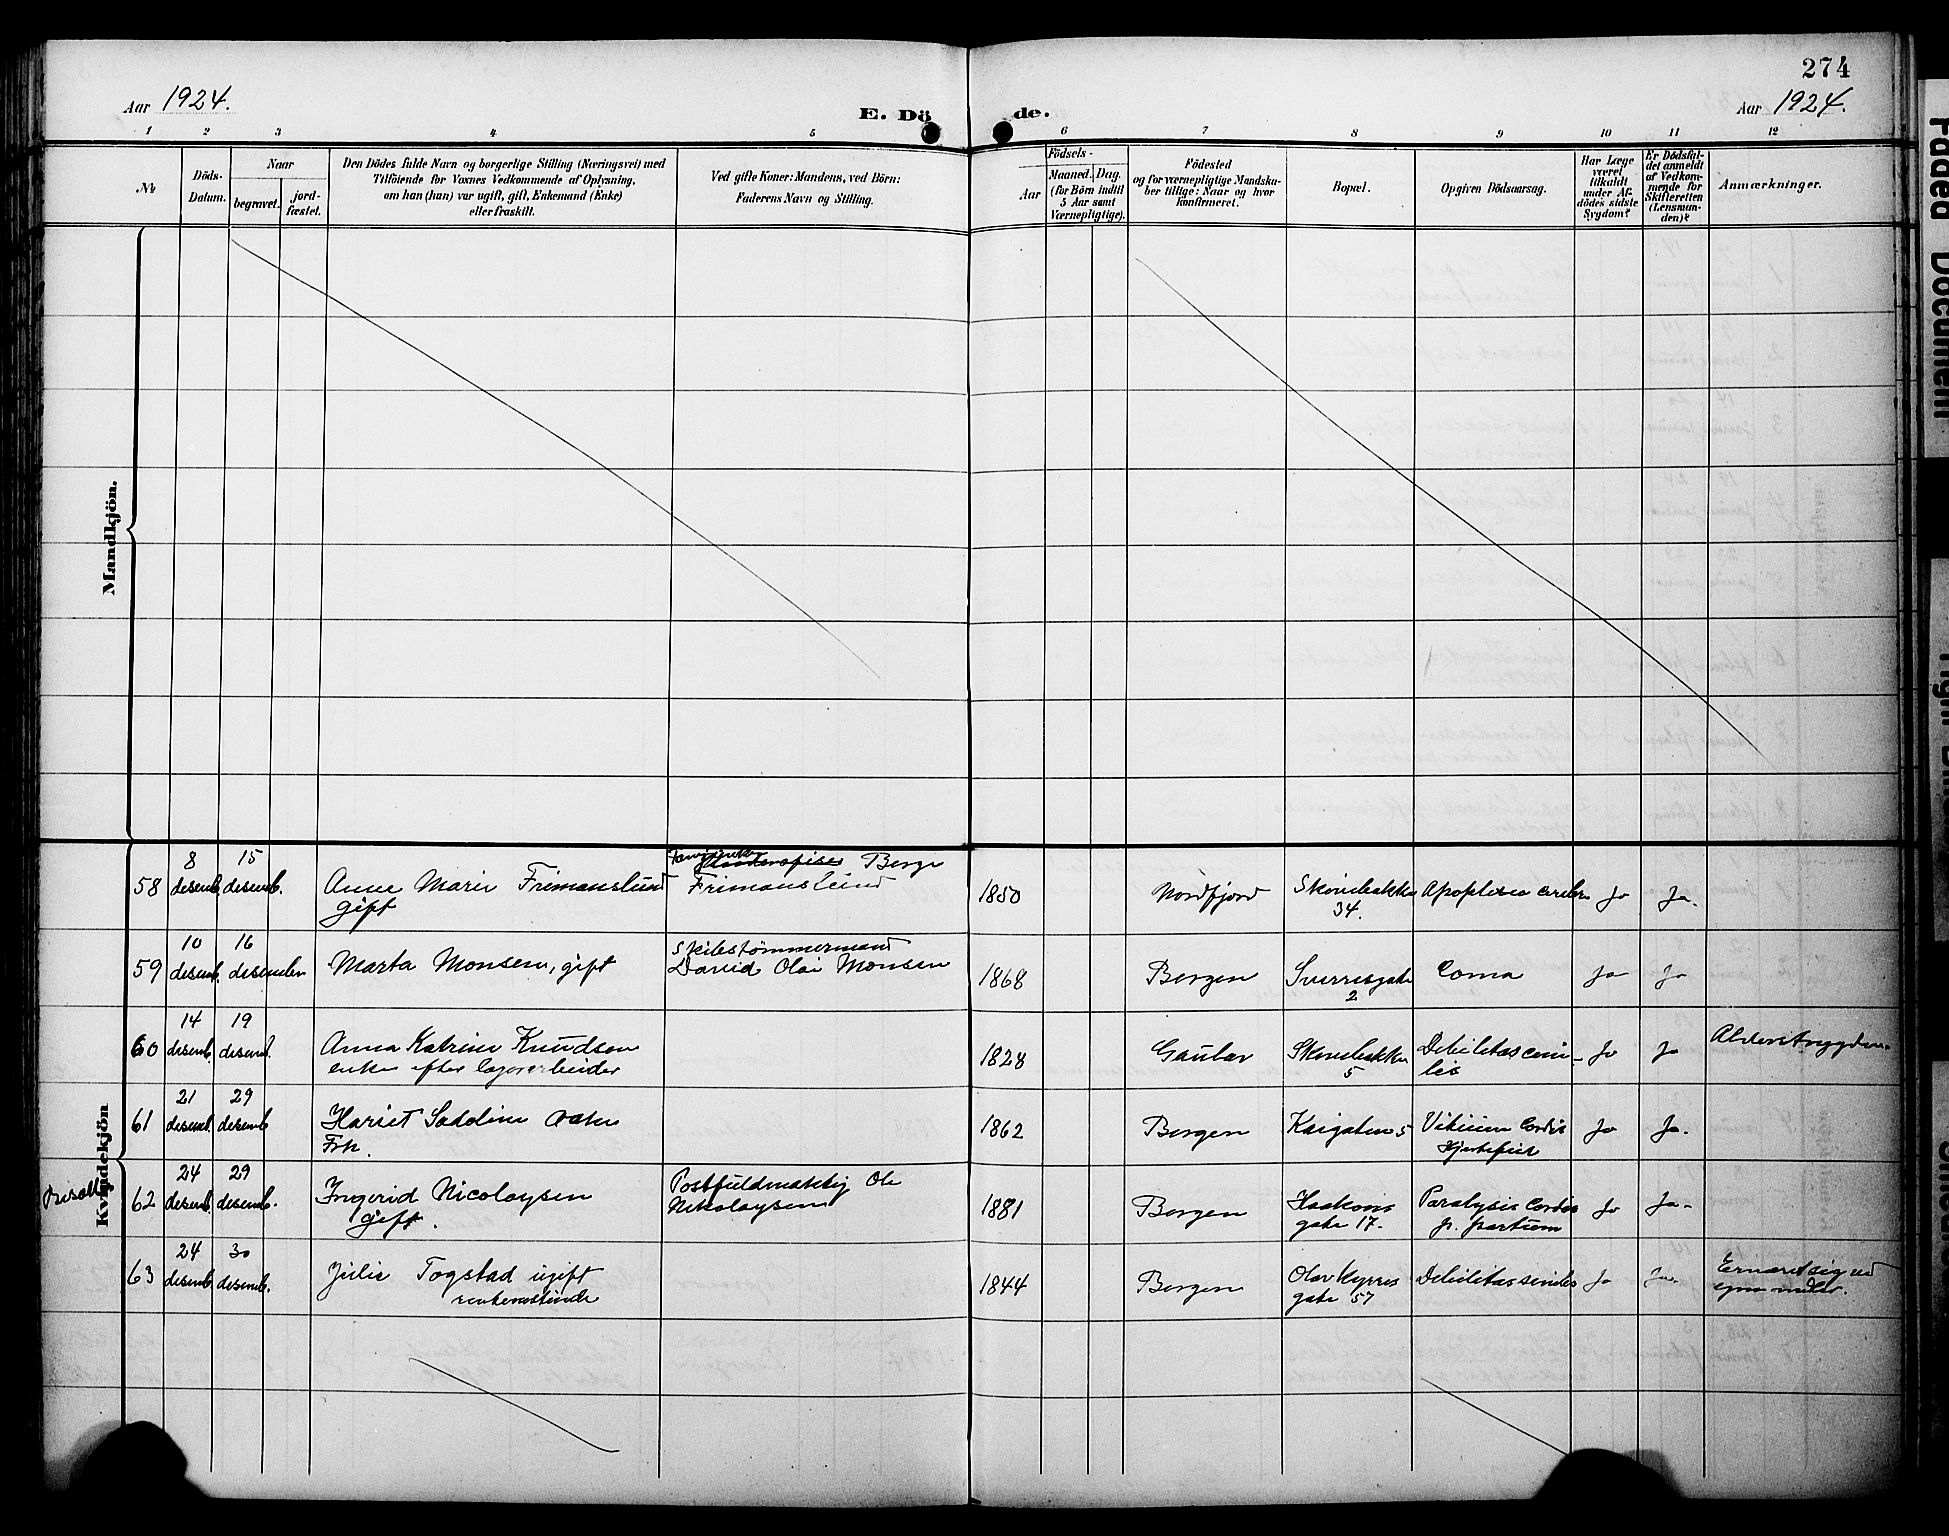 274
Aar 1924.
E. Döde.
Aar 1924.
1 2 3 4 5 6 7 8 9 10 11 12
№
Döds-Datum.
Naar
begravet.
jord-fæstet.
Den Dödes fulde Navn og borgerlige Stilling (Næringsvei) med
Tilföiende for Voxnes Vedkommende af Oplysning,
om han (hun) var ugift, gift, Enkemand (Enke)
eller fraskilt.
Ved gifte Koner: Mandens, ved Börn:
Faderens Navn og Stilling.
Födsels-
Aar
Maaned.
Dag.
(for Börn indtil
5 Aar samt
Værnepligtige).
Födested
og for værnepligtige Mandska-
ber tillige: Naar og hvor
konfirmeret.
Bopæl.
Opgiven Dödsaarsag.
Har Læge
været
tilkaldt
under Af-
dödes sidste
Sygdom?
Er Dödsfal-
det anmeldt
af Vedkom-
mende for
Skifteretten
(Lensman-
den)?
Anmærkninger.
Mandkjön.
Kvindekjön
58 8 desemb. 15 desemb. Anne Marie Frimanslund gift Berge Frimanslund 1850 Nordfjord Skivebakken 34. Apoplexia cerebri Ja Ja.
59 10 desemb. 16 desember Marta Monsen, gift Skibstømmermand David Olai Monsen 1868 Bergen Sverresgate 2 Coma Ja Ja
60 14 desemb. 19 desemb. Anna Katrine Knudsen enke efter 1828 Gaular Skivebakken 5 Debilitas cenilis Ja Ja Alderstrygden
61 21 desemb. 29 desemb. Hariet Sadoline Frk. 1862 Bergen Kaigaten 5 Vitium Cordis Hjertefeil Ja Ja.
62 24 desemb. 29 desemb. Ingerid Nicolaysen gift. Postfuldmæktig Ole Nikolaysen 1881 Bergen Haakons gate 17. Paralysis Cordis p. partum Ja Ja.
63 24 desemb. 30 desemb. Julie Togstad ugift 1844 Bergen Olav Kyrres gate 57 Debilitas senilis Ja Ja. Ernæret sig ved egne midler.
Faded Document